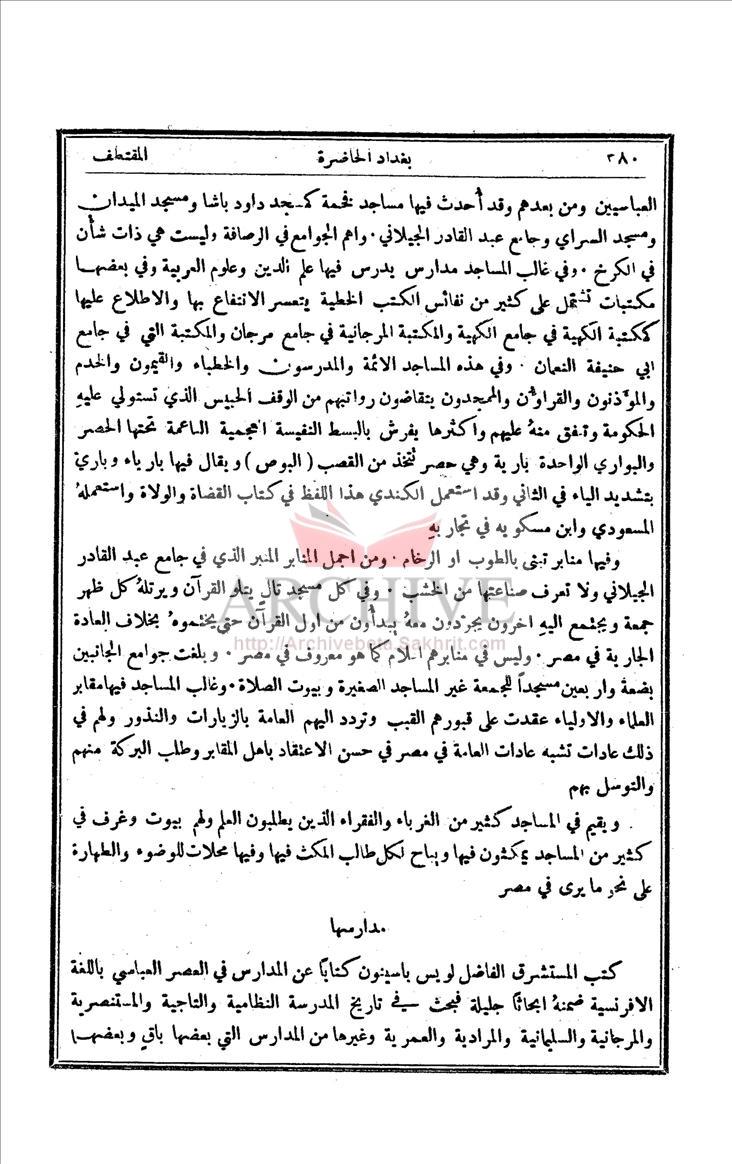 ٣٨٠ بغداد الحاضرة المقتطف
العباسيين ومن بعدهم وقد أُحدث فيها مساجد فخمة كمسجد داود باشا ومسجد الميدان
ومسجد السراي وجامع عبد القادر الجيلاني . واهم الجوامع في الرصافة وليست هي ذات شأن
في الكرخ . وفي غالب المساجد مدارس يدرس فيها علم الدين وعلوم العربية وفي بعضها
مكتبات تشتمل على كثير من نفائس الكتب الخطية يتعسر الانتفاع بها والاطلاع عليها
كمكتبة الكهية في جامع الكهية والمكتبة المرجانية في جامع مرجان والمكتبة التي في جامع
ابي حنيفة النعمان . وفي هذه المساجد الائمة والمدرسون والخطباء والقيمون والخدم
والموَّذنون والقراوَّن والممجدون يتقاضون رواتبهم من الوقف الحبيس الذي تستولي عليهِ
الحكومة وتنفق منهُ عليهم واكثرها يفرش بالبسط النفيسة العجمية الناعمة تحتها الحصر
والبواري الواحدة بارية وهي حصر تتخذ من القصب ( البوص ) ويقال فيها بارياء وباريّ
بتشديد الياء في الثاني وقد استعمل الكندي هذا اللفظ في كتاب القضاة والولاة واستعملهُ
المسعودي وابن مسكويه في تجاربهِ
وفيها منابر تبنى بالطوب او الرخام . ومن اجمل المنابر المنبر الذي في جامع عبد القادر
الجيلاني ولا تعرف صناعتها من الخشب . وفي كل مسجد تال يتلو القرآن ويرتلهُ كل ظهر
جمعة ويجتمع اليهِ اخرون يجودون معهُ يبدأُون من اول القرآن حتى يختموهُ بخلاف العادة
الجارية في مصر . وليس في منابرهم اعلام كما هو معروف في مصر . وبلغت جوامع الجانبين
بضعة واربعين مسجداً للجمعة غير المساجد الصغيرة وبيوت الصلاة . وغالب المساجد فيها مقابر
العلماء والاولياء عقدت على قبورهم القبب وتردد اليهم العامة بالزيارات والنذور ولهم في
ذلك عادات تشبه عادات العامة في مصر في حسن الاعتقاد باهل المقابر وطلب البركة منهم
والتوسل بهم
ويقيم في المساجد كثير من الغرباء والفقراء الذين يطلبون العلم ولهم بيوت وغرف في
كثير من المساجد يمكثون فيها ويباح لكل طالب المكث فيها وفيها محلات للوضوء والطهارة
على نحو ما يرى في مصر
مدارسها
كتب المستشرق الفاضل لويس ماسينون كتاباً عن المدارس في العصر العباسي باللغة
الافرنسية ضمنهُ ابحاثاً جليلة فبحث في تاريخ المدرسة النظامية والتاجية والمستنصرية
والمرجانية والسليمانية والمرادية والعمرية وغيرها من المدارس التي بعضها باقٍ وبعضها
ARCHIVE
http://Archivebeta.Sakhrit.com